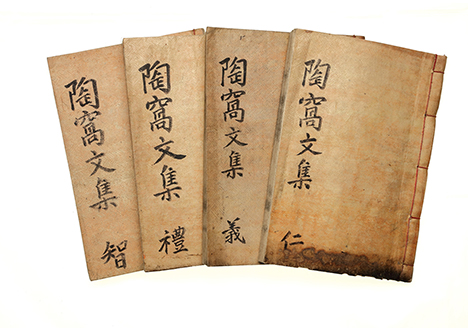 陶窩文集
仁
陶窩文集
義
陶窩文集
禮
陶窩文集
智